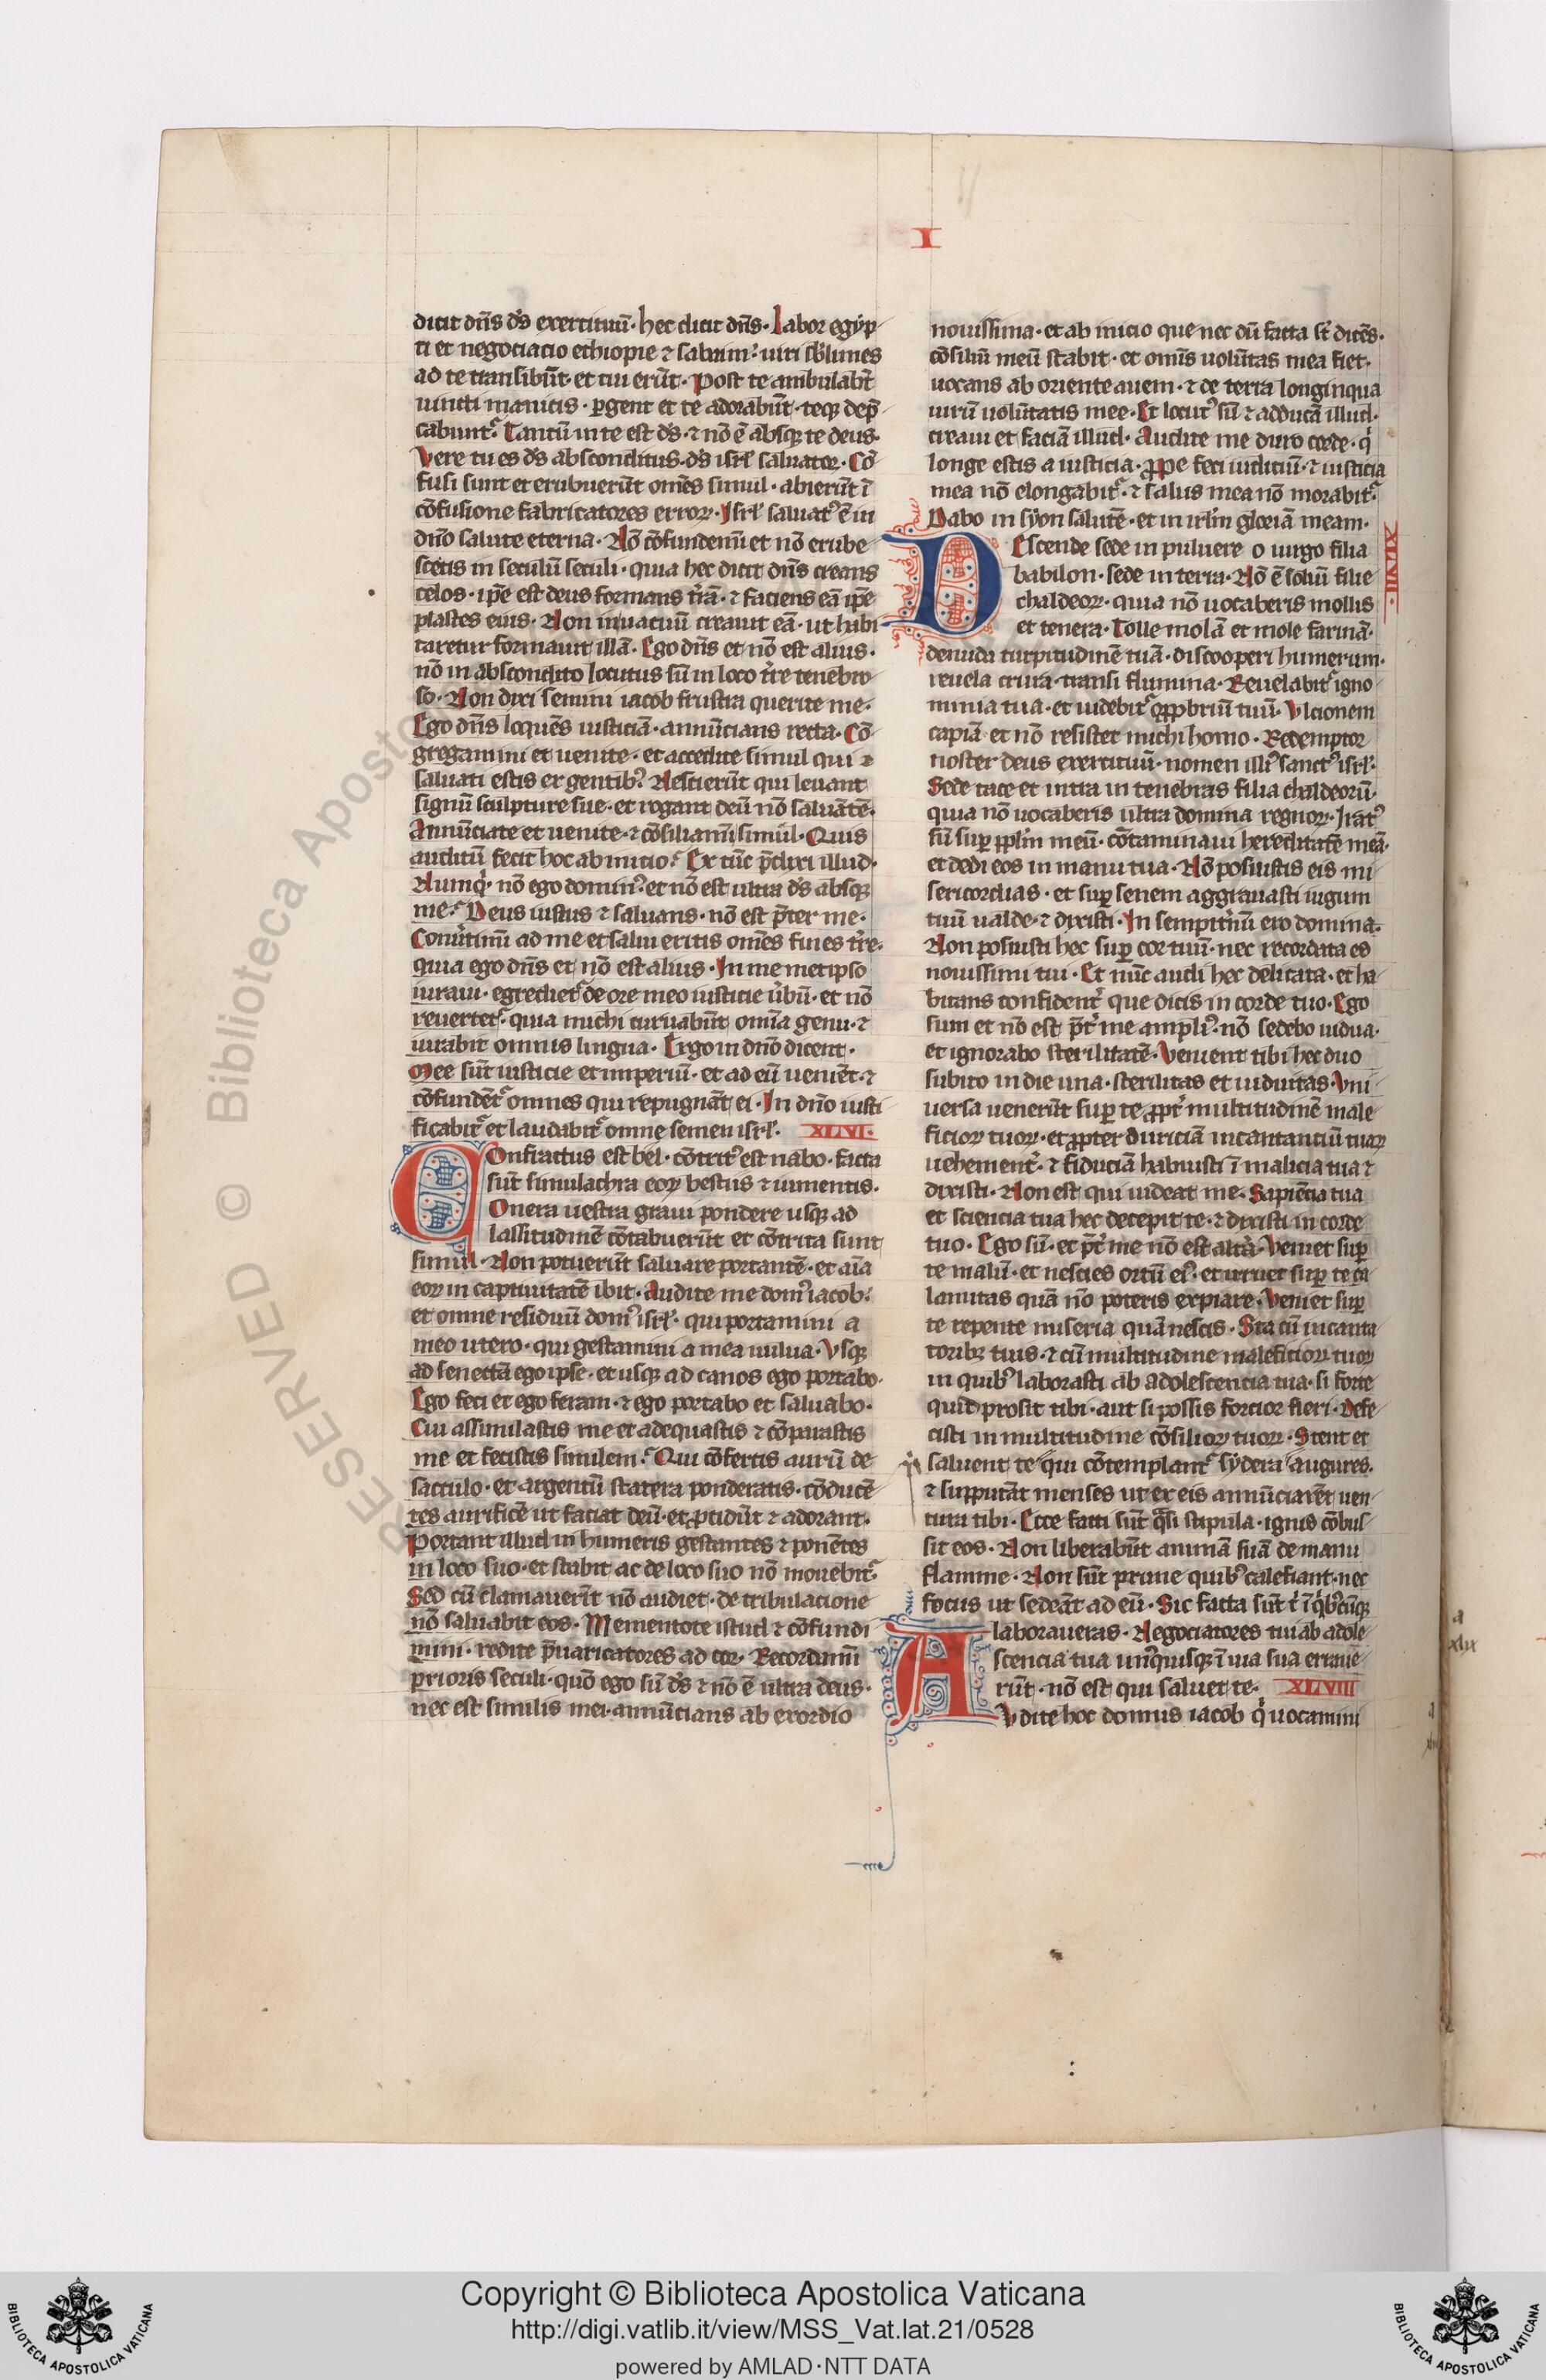 I
dicit dñs ds exercituũ. hec dicit dñs. Labor egyp
ti et negociacio ethiopie ⁊ sabaim. uiri sblimes
ad te transibũt. et tui erũt. Post te ambulabũt
uincti manicis. pgent et te adorabũt. teqꝫ dep̃
cabunt. Tantũ in te est ds. ⁊ nõ ẽ absqꝫ te deus.
Vere tu es ds absconditus. ds isrl saluator. Cõ
fusi sunt et erubuerũt omẽs simul. abierũt ĩ
cõfusione fabricatores erroꝝ. Isrl saluatꝰ ẽ in
dño salute eterna. Nõ cõfundemĩ et nõ erube
scetis in seculũ seculi. quia hec dicit dñs creans
celos. ip̃e est deus formans t̃rã. ⁊ faciens eã ip̃e
plastes eius. Non in uacuũ creauit eã. ut habi
taretur formauit illã. Ego dñs et nõ est alius.
nõ in abscondito locutus sũ in loco t̃re tenebro
so. Non dixi semini iacob frustra querite me.
Ego dñs loquẽs iusticiã. annũcians recta. Cõ
gregamini et uenite. et accedite simul qui
saluati estis ex gentibꝰ. Nescierũt qui leuant
signũ sculpture sue. et rogant deũ nõ saluãtẽ.
Annũciate et uenite. ⁊ cõsiliamĩ simul. Quis
auditũ fecit hoc ab inicio. Ex tũc p̃dixi illud.
Numqͥ. nõ ego dominꝰ. et nõ est ultra ds absqꝫ
me. Deus iustus ⁊ saluans. nõ est p̃ter me.
Conũtimĩ ad me et salui eritis omẽs fines t̃re.
quia ego dñs et nõ est alius. In memetipso
iuraui. egrediet̃ de ore meo iusticie ũbũ. et nõ
reuertet̃. quia michi curuabũt omĩa genu. ⁊
iurabit omnis lingua. Ergo in dño dicent.
Mee sũt iusticie et imperiũ. et ad eũ ueniẽt. ⁊
cõfundẽt̃ omnes qui repugnãt ei. In dño iusti
ficabit̃ et laudabit̃ omne semen isrl. XLVI.
Confractus est bel. cõtritꝰ est nabo. facta
sũt simulachra eoꝝ bestiis ⁊ iumentis.
Onera uestra graui pondere usqꝫ ad
lassitudinẽ cõtabuerũt et cõtrita sunt
simul. Non potuerũt saluare portantẽ. et aĩa
eoꝝ in captiuitatẽ ibit. Audite me domꝰ iacob.
et omne residuũ domꝰ isrl. qui portamini a
meo utero. qui gestamini a mea uulua. Vsqꝫ
ad senectã ego ipse. et usqꝫ ad canos ego portabo.
Ego feci et ego feram. ⁊ ego portabo et saluabo.
Cui assimilastis me et adequastis ⁊ cõparastis
me et fecistis similem. Qui cõfertis aurũ de
sacculo. et argentũ statera ponderatis. cõducẽ
tes aurificẽ ut faciat deũ. et ꝓcidũt ⁊ adorant.
Portant illud in humeris gestantes ⁊ ponẽtes
in loco suo. et stabit ac de loco suo nõ mouebit̃.
Sed cũ clamauerĩt nõ audiet. de tribulacione
nõ saluabit eos. Mementote istud ⁊ cõfundi
mini. redite p̃uaricatores ad cor. Recordamĩ
prioris seculi. quõ ego sũ ds ⁊ nõ ẽ ultra deus.
nec est similis mei. annũcians ab exordio
nouissima. et ab inicio que nec dũ facta st̃ dicẽs.
cõsiliũ meũ stabit. et omĩs uolũtas mea fiet.
uocans ab oriente auem. ⁊ de terra longinqua
uirũ uolũtatis mee. Et locutꝰ sũ ⁊ adducã illud.
creaui et faciã illud. Audite me duro corde. qͥ
longe estis a iusticia. ꝓpe feci iusticiã. ⁊ iusticia
mea nõ elongabit̃. ⁊ salus mea nõ morabit̃.
Dabo in syon salutẽ. et in irlm gloriã meam.
XLVII.
Descende sede in puluere o uirgo filia
babilon. sede in terra. Nõ ẽ soliũ filie
chaldeoꝝ. quia nõ uocaberis mollis
et tenera. Tolle molã et mole farinã.
denuda turpitudinẽ tuã. discooperi humerum.
reuela crura. transi flumina. Reuelabit̃ igno
minia tua. et uidebit̃ opꝓbriũ tuũ. Vlcionem
capiã et nõ resistet michi homo. Redemptor
noster deus exercituũ. nomen illiꝰ sanctꝰ isrl.
Sede tace et intra in tenebras filia chaldeorũ.
quia nõ uocaberis ultra domina regnoꝝ. Iratꝰ
sũ suꝑ pplm meũ. cõtaminaui hereditatẽ meã.
et dedi eos in manu tua. Nõ posuistis eis mi
sericordias. et suꝑ senem aggrauasti iugum
tuũ ualde. ⁊ dixisti. In sempit̃nũ ero domina.
Non posuisti hec suꝑ cor tuũ. nec recordata es
nouissimi tui. Et nũc audi hec delicata. et ha
bitans confident̃ que dicis in corde tuo. Ego
sum et nõ est p̃t̃ me ampliꝰ. nõ sedebo uidua.
et ignorabo sterilitatẽ. Venient tibi hec duo
subito in die una. sterilitas et uiduitas. Vni
uersa uenerũt suꝑ te ꝓpt̃ multitudinẽ male
ficioꝝ tuoꝝ. et ꝓpter duriciã incantantiũ tuaꝝ
uehement̃. ⁊ fiduciã habuisti ĩ malicia tua ⁊
dixisti. Non est qui uideat me. Sapiẽcia tua
et sciencia tua hec decepit te. ⁊ dixisti in corde
tuo. Ego sũ. et p̃t̃ me nõ est altã. Veniet suꝑ
te malũ. et nescies ortũ eiꝰ. et irruet suꝑ te ca
lamitas quã nõ poteris expiare. Veniet suꝑ
te repente miseria quã nescis. Sta cũ incanta
toribꝫ tuis. ⁊ cũ multitudine maleficioꝝ tuoꝝ
in quibꝰ laborasti ab adolescencia tua. si forte
quid prosit tibi. aut si possis forcior fieri. Defe
cisti in multitudine cõsilioꝝ tuoꝝ. Stent et
saluent te qui cõtemplant̃ sydera augures.
⁊ supputãt menses ut ex eis annũciarẽt uen
tura tibi. Ecce facti sũt q̃si stipula. ignis cõbus
sit eos. Non liberabũt animã suã de manu
flamme. Non sũt prune quibꝰ calefiant. nec
focus ut sedeãt ad eũ. Sic facta sũt t̃ ĩ qͥbꝰcũqꝫ
laboraueras. Negociatores tui ab adole
scencia tua unꝰquisqꝫ ĩ uia sua erraue
rũt. nõ est qui saluet te. XLVIII
Audite hoc domus iacob qͥ uocamini
BIBLIOTECA APOSTOLICA VATICANA
Copyright © Biblioteca Apostolica Vaticana
http://digi.vatlib.it/view/MSS_Vat.lat.21/0528
powered by AMLAD·NTT DATA
BIBLIOTECA APOSTOLICA VATICANA